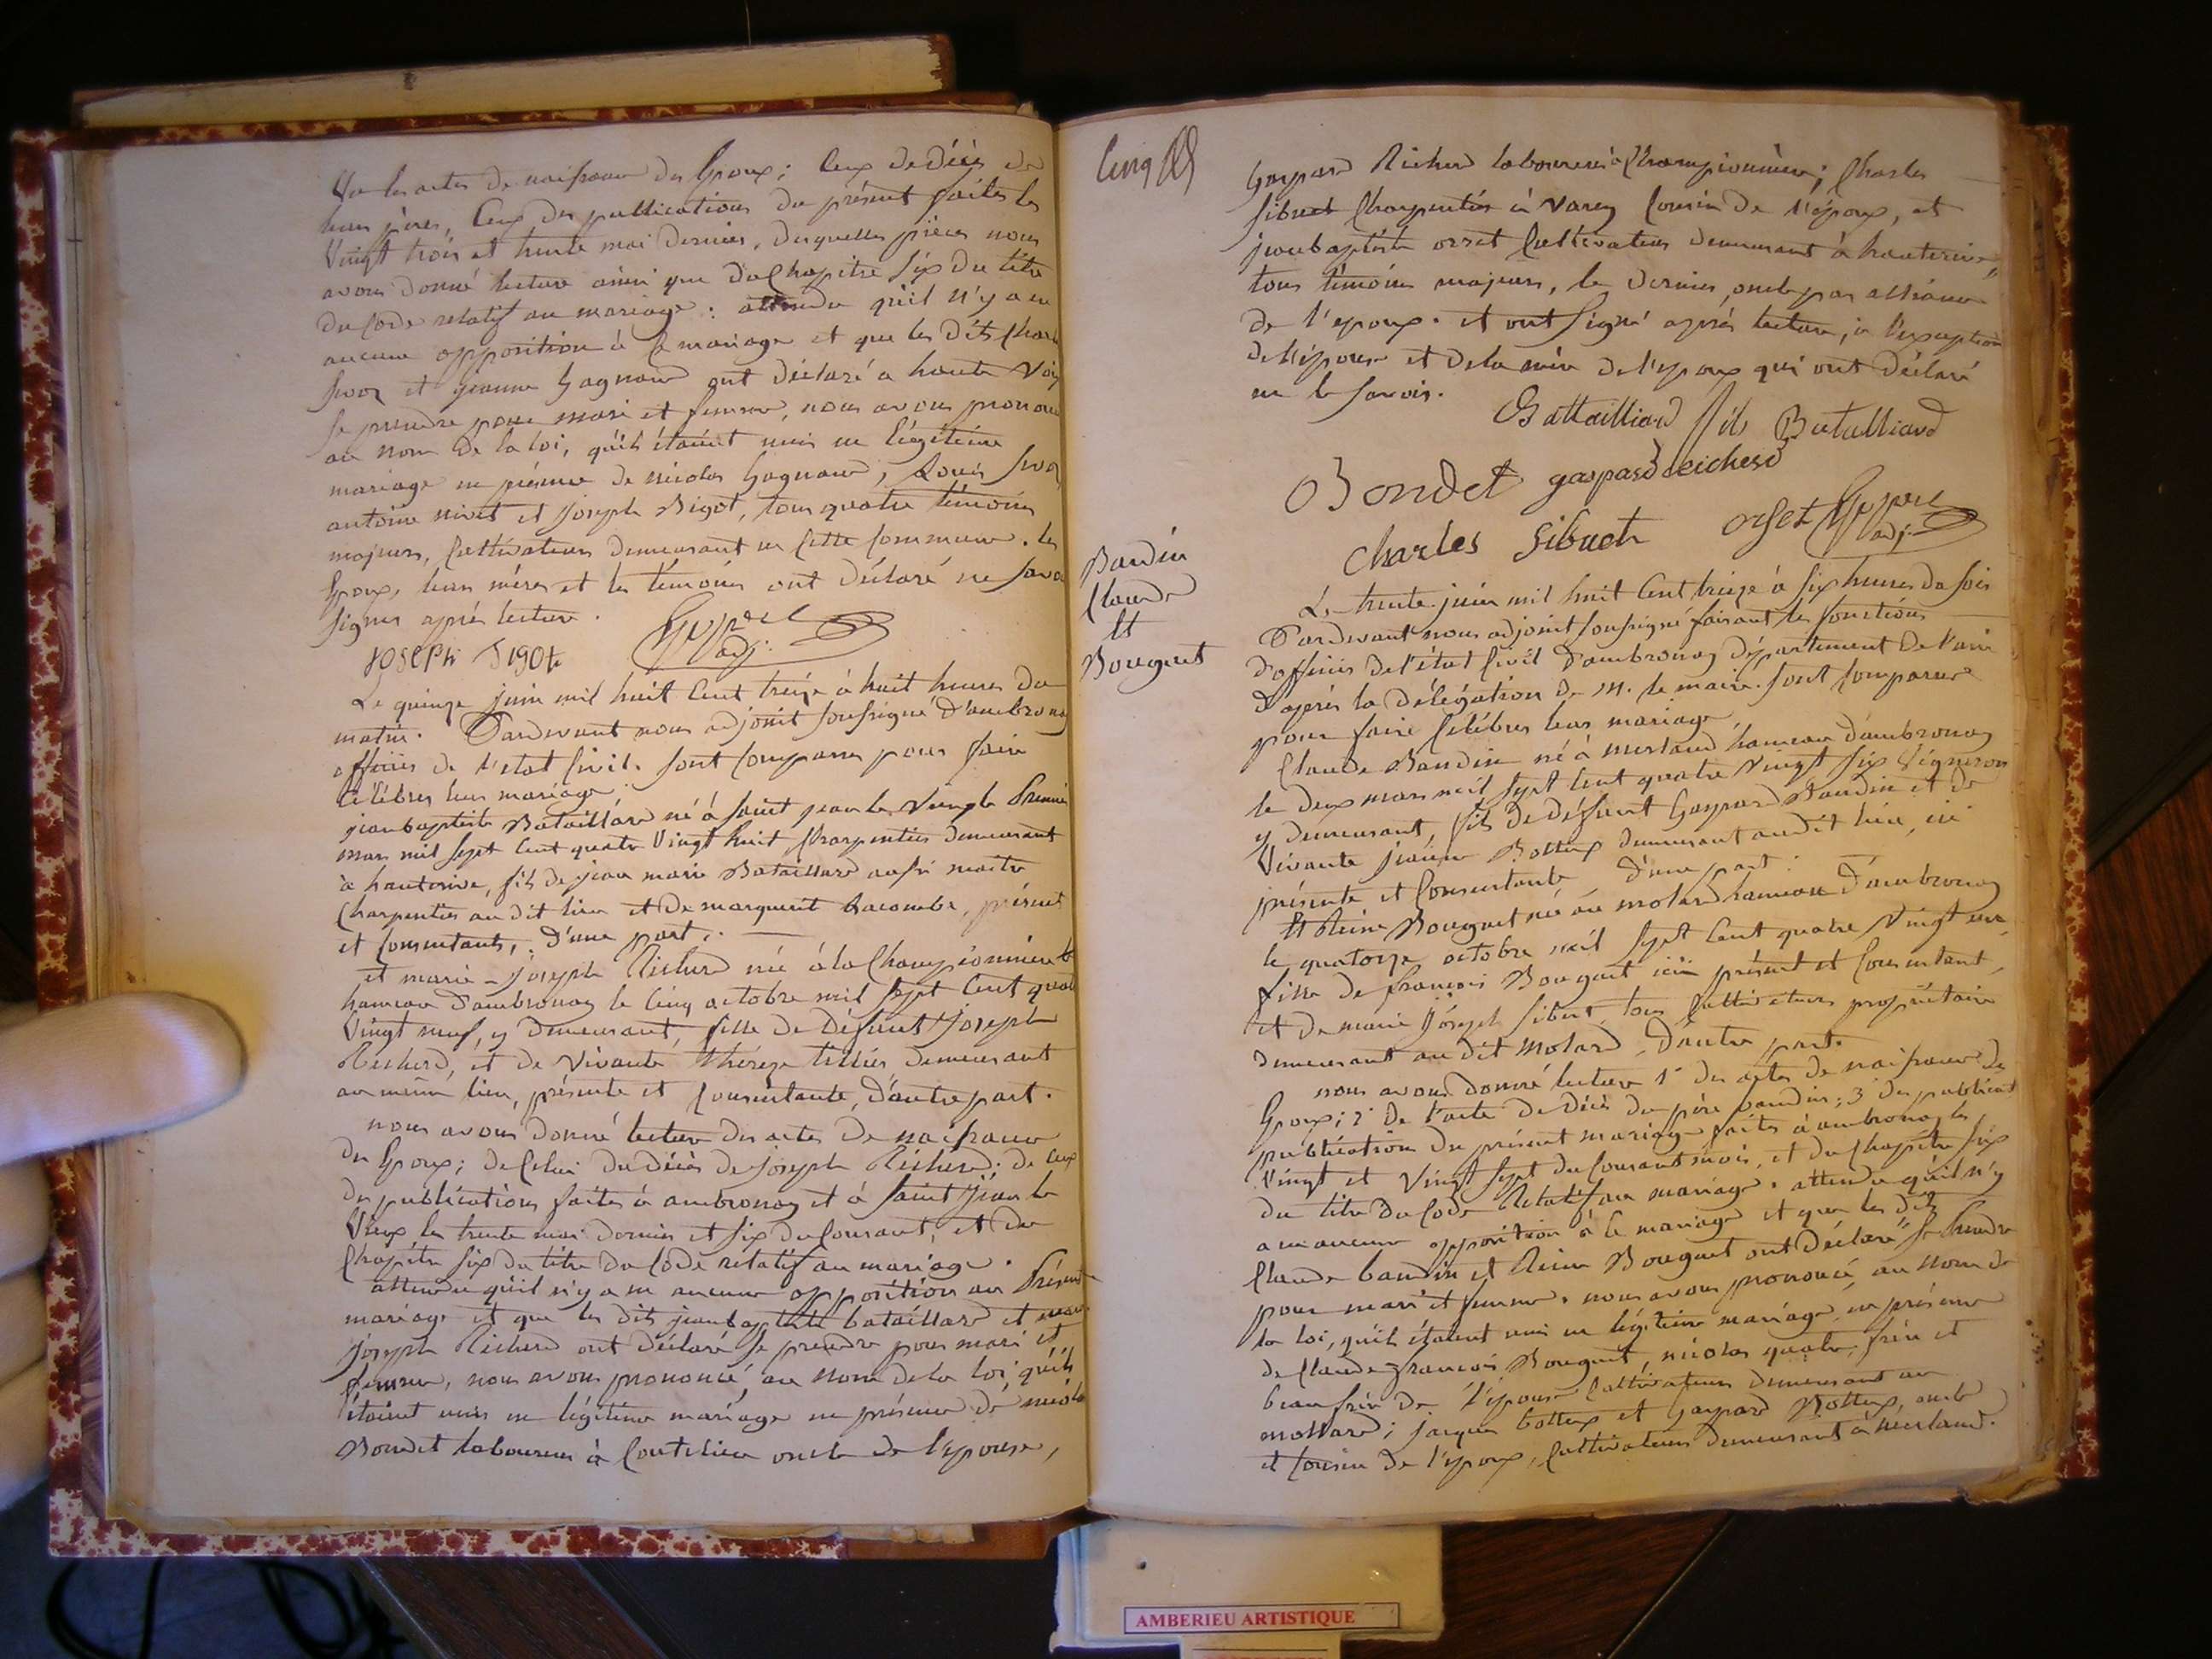 Vu les actes de naissance des Epoux; Ceux de décès de
leurs pères, Ceux des publications du présent faites les
Vingt trois et trente mai dernier, desquelles pièces nous
avons donné lecture ainsi que du Chapitre Six du titre
du Code relatif au mariage: attendu qu'il n'y a eu
aucune opposition à Ce mariage et que les dits
et jeanne Gagnard ont déclaré a haute Voix
se prendre pour mari et femme, nous avons prononcé
au nom de la loi, qu'ils étaient unis en légitime
mariage en présence de nicolas Gagnard, Louis
antoine nivet et Joseph Bigot, tous quatre témoins
majeurs, Cultivateurs demeurant en Cette Commune. les
Epoux, leurs mères et les témoins ont déclaré ne savoir
signer après lecture.
JOSEPh BIgOt adj.
Le quinze juin mil huit Cent treize à huit heures du
matin. Pardevant nous adjoint soussigné d'ambronay
officier de l'état Civil. sont Comparus pour faire
Célébrer leur mariage
jean baptiste Bataillard né à saint jean le Vieux le Premier
mars mil sept Cent quatre Vingt huit, Charpentier demeurant
à hauterive, fils de jean marie Bataillard aussi maitre
Charpentier au dit lieu et de marguerit Lacombe, présents
et Consentants, d'une part.
et marie-joseph Richerd née à la Championnière
hameau d'ambronay le Cinq octobre mil sept Cent quatre
Vingt neuf, y demeurant, fille de Défunt Joseph
Richerd, et de Vivante thérèze tillier demeurant
au même lieu, présente et Consentante, d'autre part.
nous avons donné lecture des actes de naissance
des Epoux; de Celui du décès de joseph Richerd; de Ceux
des publications faites à ambronay et à Saint Jean le
Vieux les trente mai dernier et six du Courant, et du
Chapitre Six du titre du Code relatif au mariage.
attendu qu'il n'y a eu aucune opposition au Présent
mariage et que les dits jean baptiste bataillard et marie
Joseph Richerd ont déclaré se prendre pour mari et
femme, nous avons prononcé au nom de la loi, qu'ils
étaient unis en légitime mariage en présence de nicolas
Bondet laboureur à Coutelieu oncle de l'épouse,
Cinq
Gaspard Richerd laboureur à Championnière; Charles
Sibuet Charpentier à Varey Cousin de l'époux, et
jean baptiste orset Cultivateur demeurant à hauterive
tous témoins majeurs, le dernier, oncle par alliance
de l'epoux. et ont signé après lecture, à l'exception
de l'épouse et de la mère de l'epoux qui ont déclaré
ne le savoir.
Battailliard fils Batalliard
Bondet gaspard reicherd
Charles Sibuet orset adj.
Baudin
Claude
Et
Bouguet
Le trente juin mil huit Cent treize à six heures du soir
Pardevant nous adjoint soussigné faisant les fonctions
d'officier de l'état Civil d'ambronay département De l'ain
d'après la délégation de M. le maire. sont Comparus
pour faire Célébrer leur mariage
Claude Baudin né à merland hameau d'ambronay
le deux mars mil sept Cent quatre Vingt six Vigneron
y demeurant, fils de défunt Gaspard Baudin et de
Vivante jeanne Bottex demeurant au dit lieu, ici
présente et Consentante d'une part.
Et Reine Bouguet née au molard hameau d'ambronay
le quatorze octobre mil sept Cent quatre Vingt
fille de francois Bouguet ici présent et Consentant,
et de marie Joseph Sibuet, tous Cultivateurs propriétaire
demeurant au dit Molard, d'autre part.
nous avons donné lecture 1° des actes de naissance des
Epoux; 2° de l'acte de décès du père baudin; 3° des publicat
publication du présent mariage faites à ambronay les
Vingt et Vingt sept du Courant mois, et du Chapitre six
du titre du Code Relatif au mariage. attendu qu'il n'y
a eu aucune opposition à Ce mariage et que les dits
Claude baudin et Reine Bouguet ont déclaré se Prendre
pour mari et femme. nous avons prononcé au nom de
la loi, qu'ils étaient unis en légitime mariage, en présence
de Claude françois Bouguet, nicolas quatre, frère et
beau frère de l'épouse Cultivateurs demeurant au
mollard; jacques bottex et Gaspard Bottex, oncle
et Cousin de l'époux, Cultivateurs demeurant à merland.
AMBERIEU ARTISTIQUE